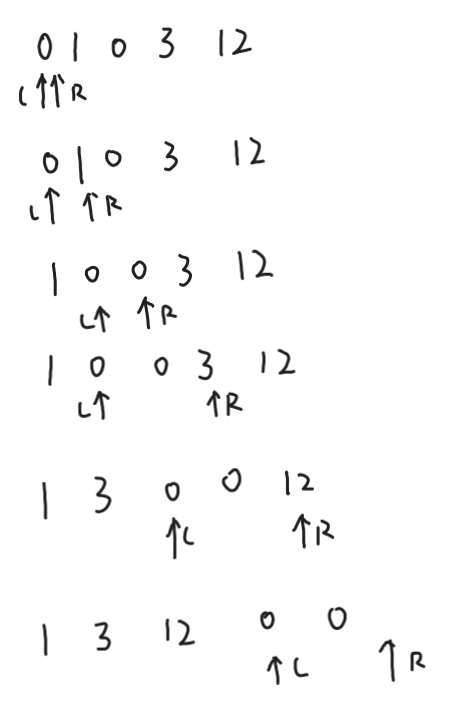 0 1 0 3 12
L ↑↑ R
0 1 0 3 12
L↑ ↑R
1 0 0 3 12
L↑ ↑R
1 0 0 3 12
L↑ ↑R
1 3 0 0 12
↑L ↑R
1 3 12 0 0
↑L ↑R